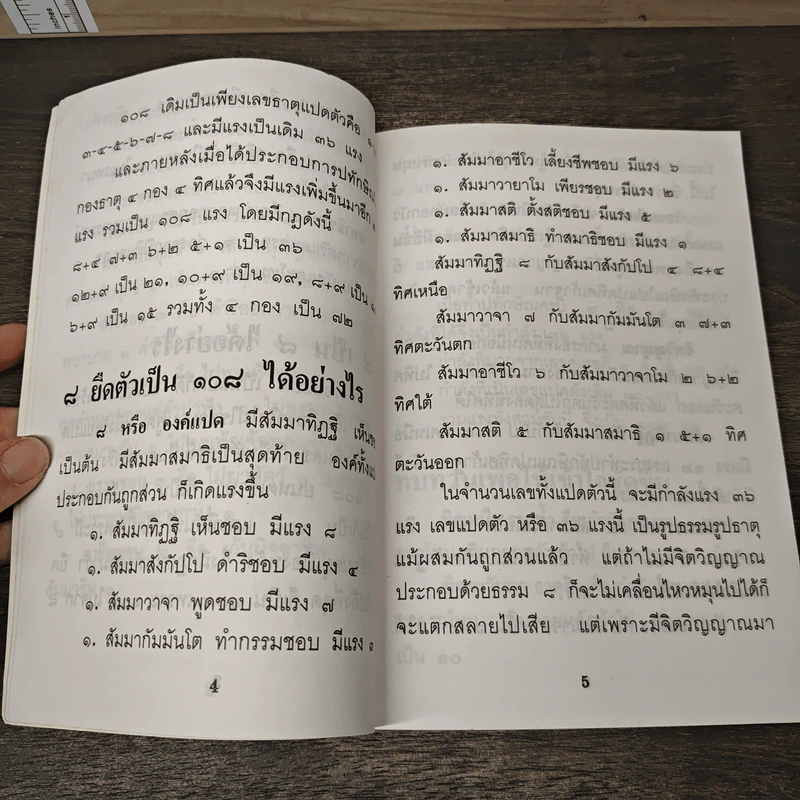 inches
๑๐๘ เดิมเป็นเพียงเลขธาตุแปดตัวคือ ๑
๓-๔-๕-๖-๗-๘ และมีแรงเป็นเดิม ๓๖ แรง
และภายหลังเมื่อได้ประกอบการปทักษิณ
กองธาตุ ๔ กอง ๔ ทิศแล้วจึงมีแรงเพิ่มขึ้นมาอีก
แรง รวมเป็น ๑๐๘ แรง โดยมีกฎดังนี้
๘+๔ ๗+๓ ๖+๒ ๕+๑ เป็น ๓๖
๑๒+๙ เป็น ๒๑, ๑๐+๙ เป็น ๑๙, ๘+๙ เป็น
๖+๙ เป็น ๑๕ รวมทั้ง ๔ กอง เป็น ๗๒
๘ ยืดตัวเป็น ๑๐๘ ได้อย่างไร
๘ หรือ องค์แปด มีสัมมาทิฏฐิ
เป็นต้น มีสัมมาสมาธิเป็นสุดท้าย
ประกอบกันถูกส่วน ก็เกิดแรงขึ้น
๑. สัมมาทิฏฐิ เห็นชอบ มีแรง ๘
๑. สัมมาสังกัปโป ดำริชอบ มีแรง ๔
๑. สัมมาวาจา พูดชอบ มีแรง ๗
๑. สัมมากัมมันโต ทำกรรมชอบ มีแรง ๓
4
๑. สัมมาอาชีโว เลี้ยงชีพชอบ มีแรง ๖
๑. สัมมาวายาโม เพียรชอบ มีแรง ๒
๑. สัมมาสติ ตั้งสติชอบ มีแรง ๕
๑. สัมมาสมาธิ ทำสมาธิชอบ มีแรง ๑
สัมมาทิฏฐิ ๘ กับสัมมาสังกัปโป ๔ ๘+๔
ทิศเหนือ
สัมมาวาจา ๗ กับสัมมากัมมันโต ๓ ๗+๓
ทิศตะวันตก
สัมมาอาชีโว ๖ กับสัมมาวาจาโม ๒ ๖+๒
ทิศใต้
สัมมาสติ ๕ กับสัมมาสมาธิ ๑ ๕+๑ ทิศ
ตะวันออก
ในจำนวนเลขทั้งแปดตัวนี้ จะมีกำลังแรง ๓๖
แรง เลขแปดตัว หรือ ๓๖ แรงนี้ เป็นรูปธรรมรูปธาตุ
แม้ผสมกันถูกส่วนแล้ว แต่ถ้าไม่มีจิตวิญญาณ
ประกอบด้วยธรรม ๘ ก็จะไม่เคลื่อนไหวหมุนไปได้ก็
จะแตกสลายไปเสีย แต่เพราะมีจิตวิญญาณมา
5